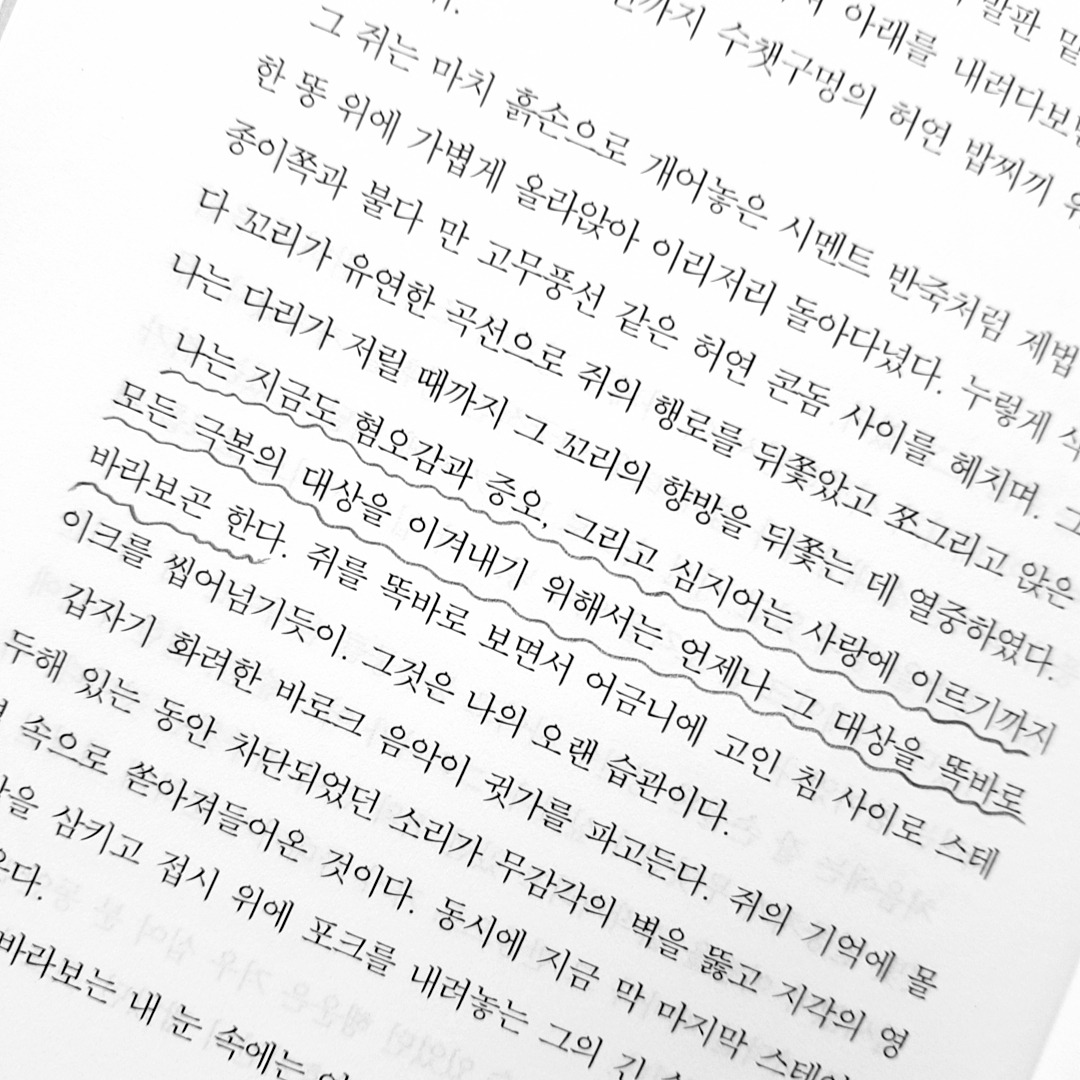 아래를 내려다보면
까지 수챗구멍의 허연 밥찌끼 위
그 쥐는 마치 흙손으로 개어놓은 시멘트 반죽처럼 제법
한 똥 위에 가볍게 올라앉아 이리저리 돌아다녔다. 누렇게
종이쪽과 불다 만 고무풍선 같은 허연 콘돔 사이를 헤치며. 그
다 꼬리가 유연한 곡선으로 쥐의 행로를 뒤쫓았고 쪼그리고 앉은
나는 다리가 저릴 때까지 그 꼬리의 향방을 뒤쫓는 데 열중하였다.
나는 지금도 혐오감과 증오, 그리고 심지어는 사랑에 이르기까지
모든 극복의 대상을 이겨내기 위해서는 언제나 그 대상을 똑바로
바라보곤 한다. 쥐를 똑바로 보면서 어금니에 고인 침 사이로 스테
이크를 씹어넘기듯이. 그것은 나의 오랜 습관이다.
갑자기 화려한 바로크 음악이 귓가를 파고든다. 쥐의 기억에 몰
두해 있는 동안 차단되었던 소리가 무감각의 벽을 뚫고 지각의 영
속으로 쏟아져들어온 것이다. 동시에 지금 막 마지막 스테이
을 삼키고 접시 위에 포크를 내려놓는 그의 긴
바라보는 내 눈 속에는